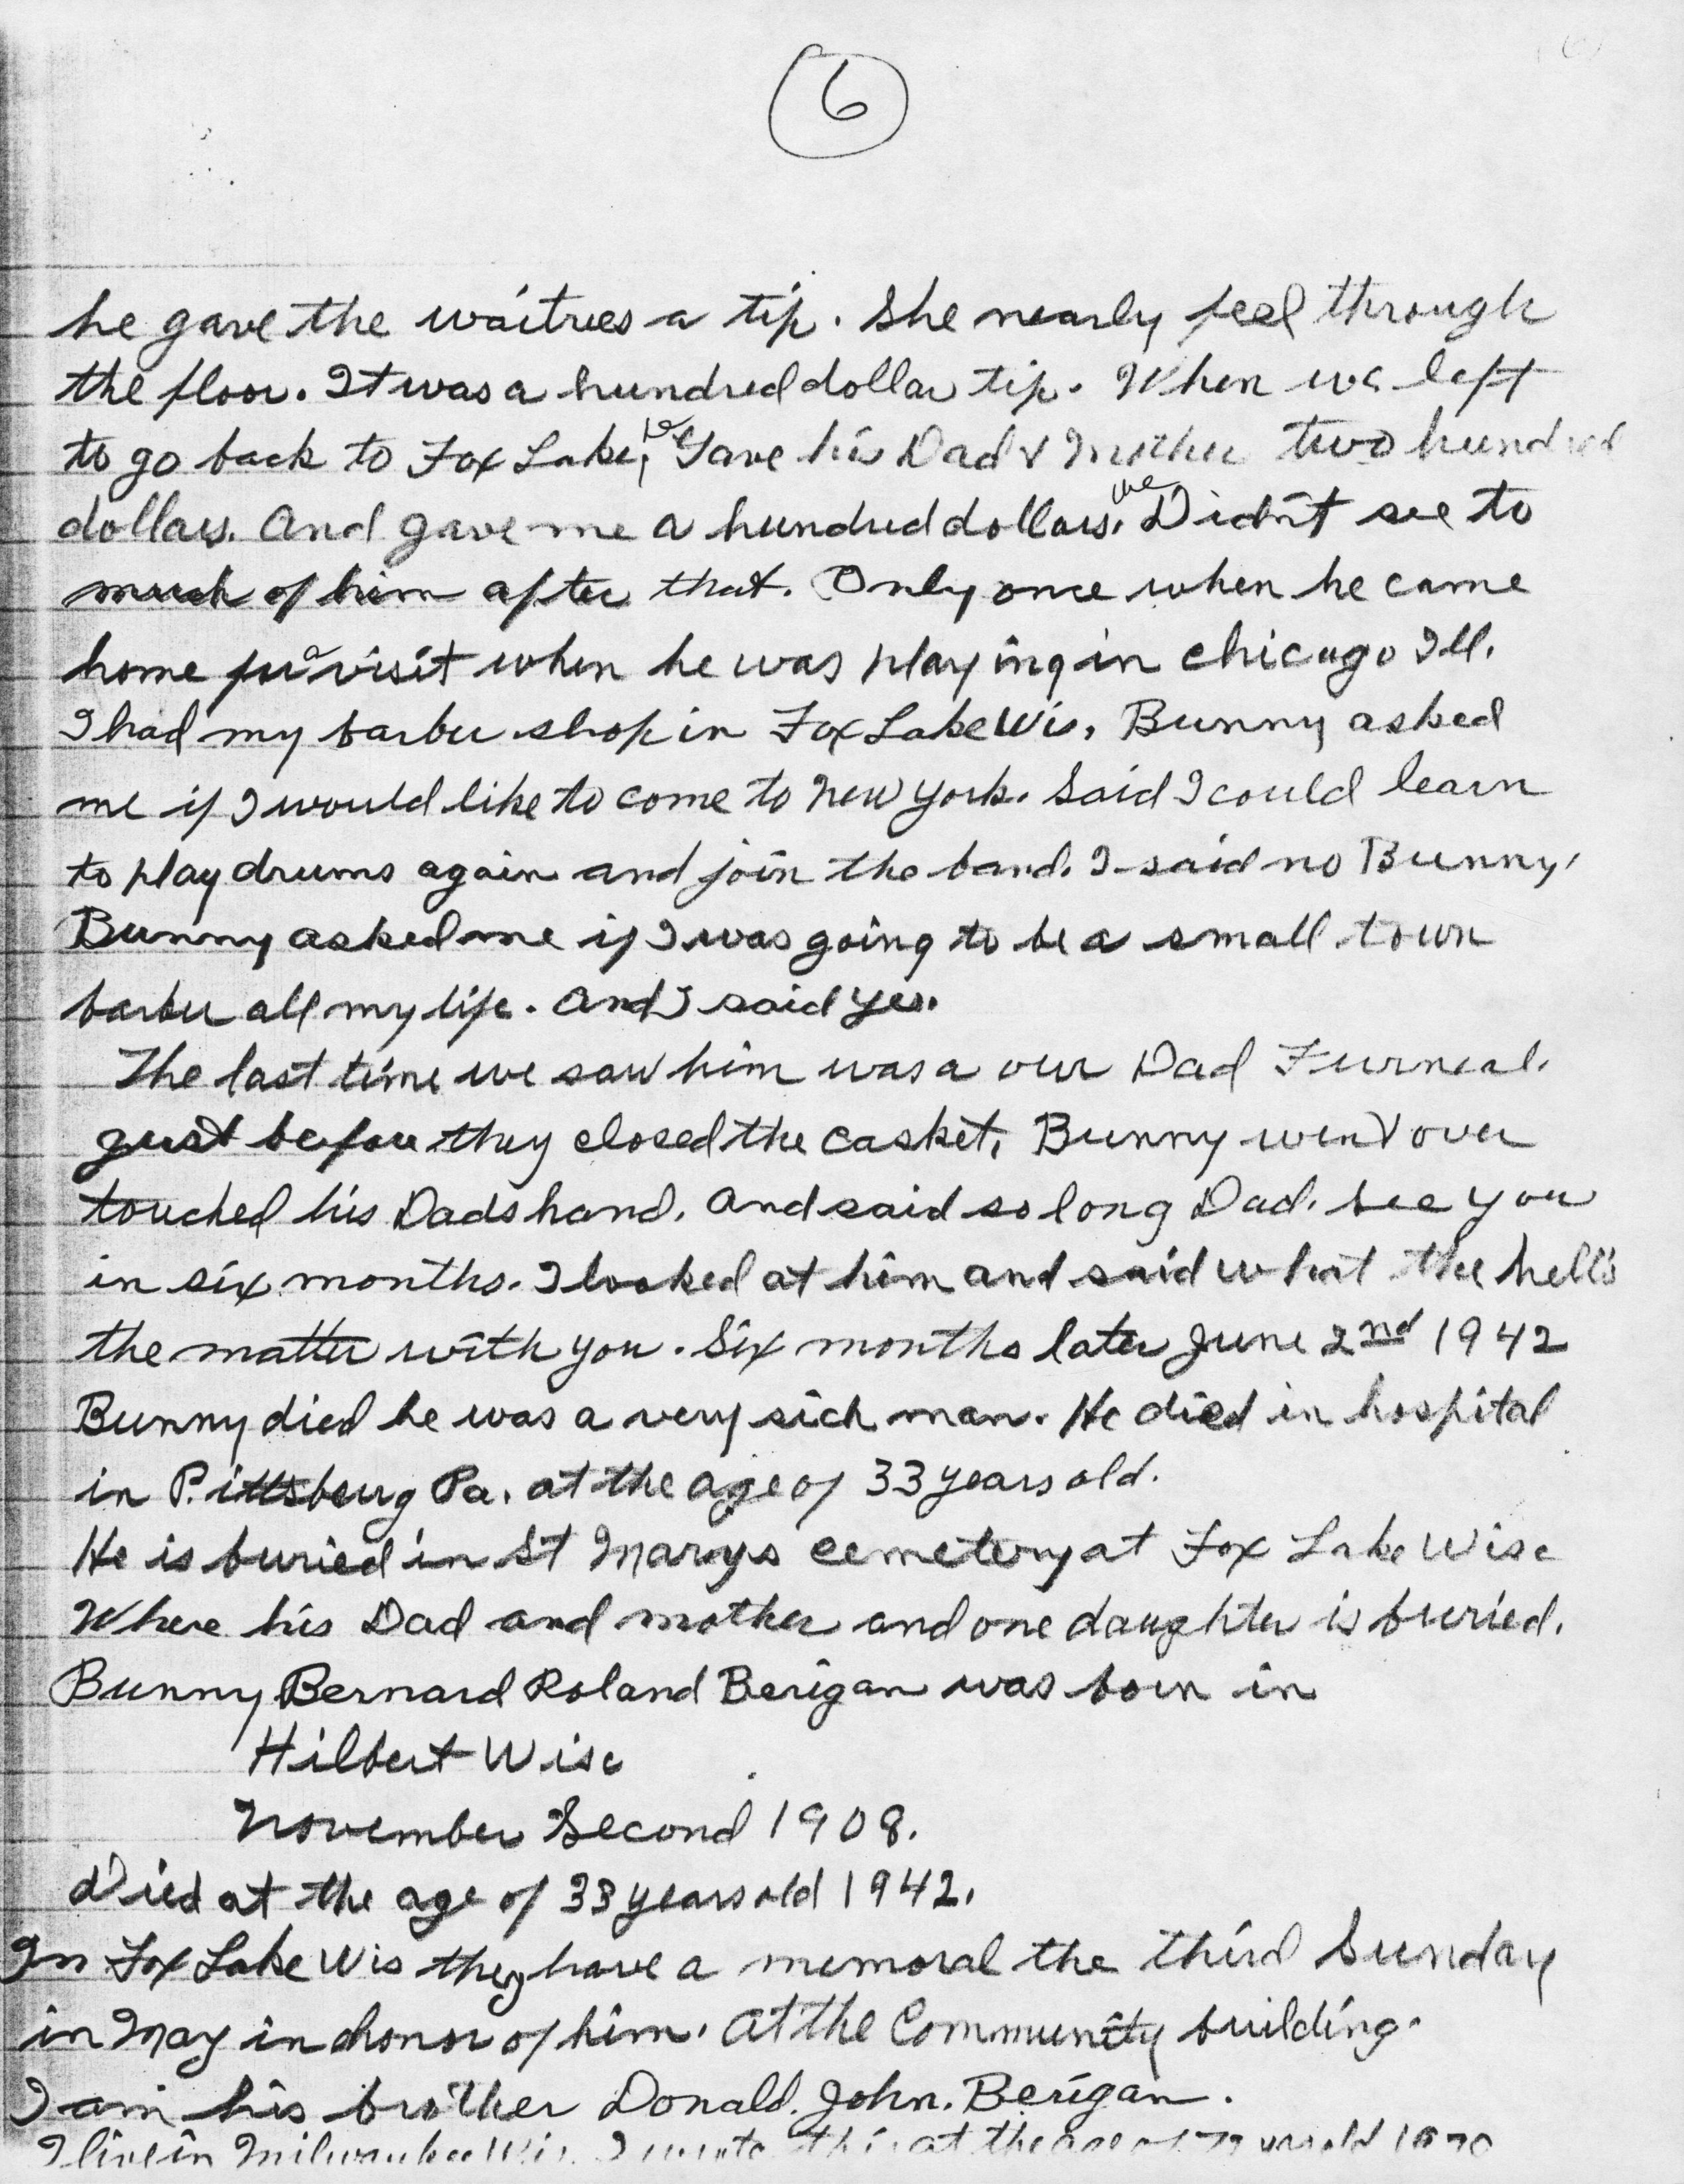 6
he gave the waitrees a tip. She nearly feel through
the floor. It was a hundred dollar tip. When we left
to go back to Fox Lake, he Gave his Dad & Mother two hundred
dollars. And gave me a hundred dollars. we Didn't see to
much of him after that. Only once when he came
home for a visit when he was playing in Chicago Ill.
I had my barber shop in Fox Lake Wis, Bunny asked
me if I would like to come to New York. Said I could learn
to play drums again and join the band. I said no Bunny,
Bunny asked me if I was going to be a small town
barber all my life. And I said yes.
The last time we saw him was a our Dad Furneal.
Just before they closed the casket, Bunny went over
touched his Dads hand. and said so long Dad. See you
in six months. I looked at him and said what the hell's
the matter with you. Six months later June 2nd 1942
Bunny died he was a very sick man. He died in hospital
in P.ittsburg Pa. at the age of 33 years old.
He is buried in St Marys cemetery at Fox Lake Wisc
Where his Dad and mother and one daughter is buried.
Bunny Bernard Roland Berigan was born in
Hilbert Wisc
November Second 1908.
Died at the age of 33 years old 1942.
In Fox Lake Wis they have a memoral the third Sunday
in May in honor of him. At the Community building.
I am his brother Donald. John. Berigan.
I live in Milwaukee Wis. I wrote this at the age of years old